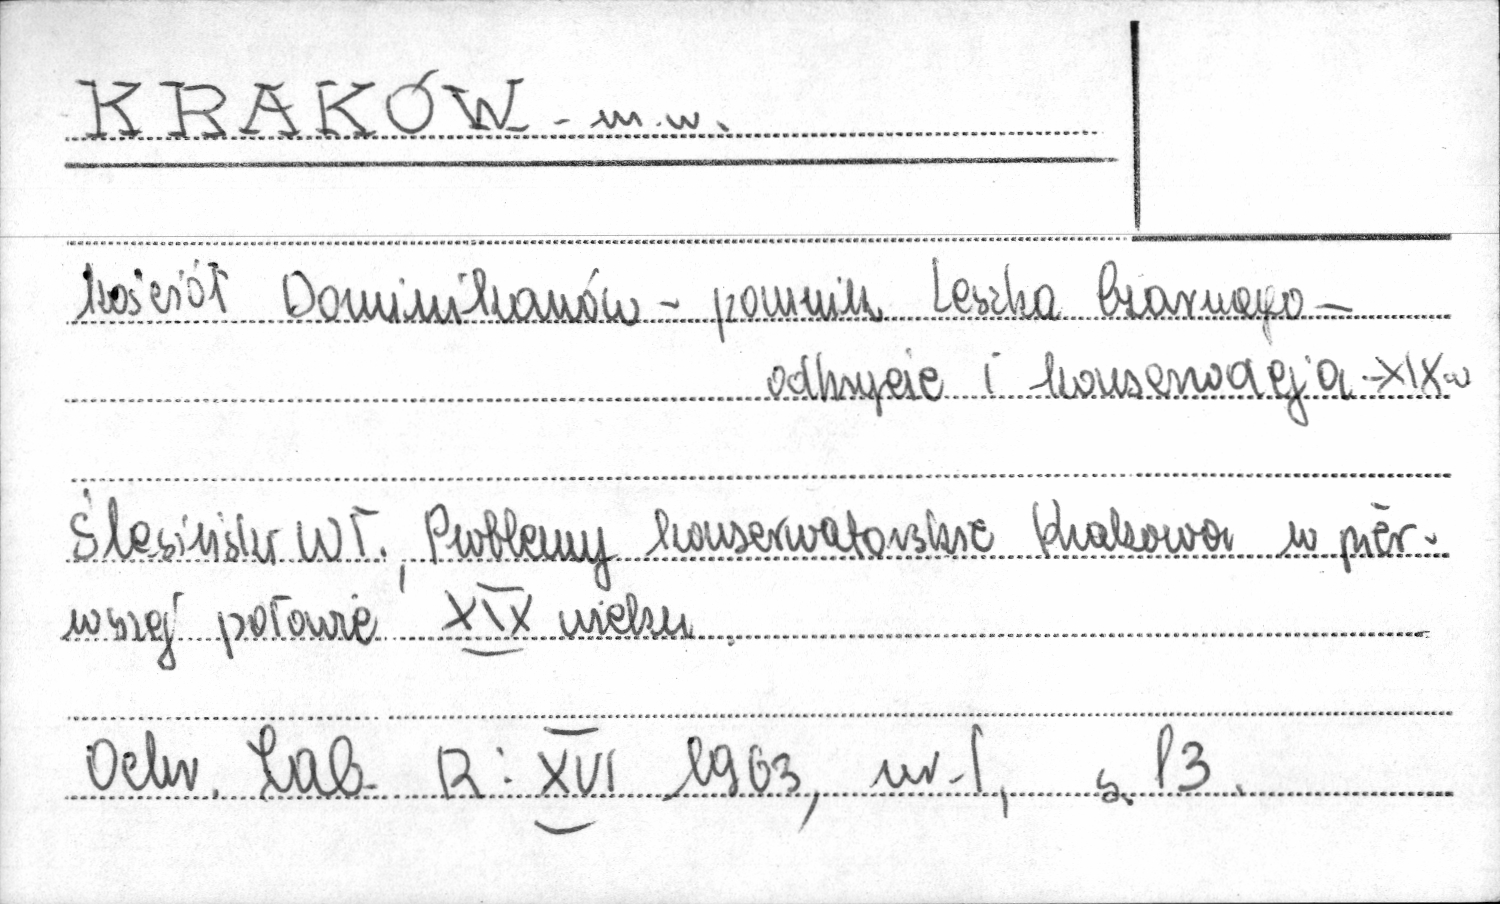 KRAKÓW - m.w.
kościół Dominikanów - pomnik Leszka Czarnego -
odkrycie i konserwacja - XIX w
Ślesiński Wł., Problemy konserwatorskie Krakowa w pier-
wszej połowie XIX wieku.
Ochr. Zab. R: XVI 1963, nr. 1, s. 13.